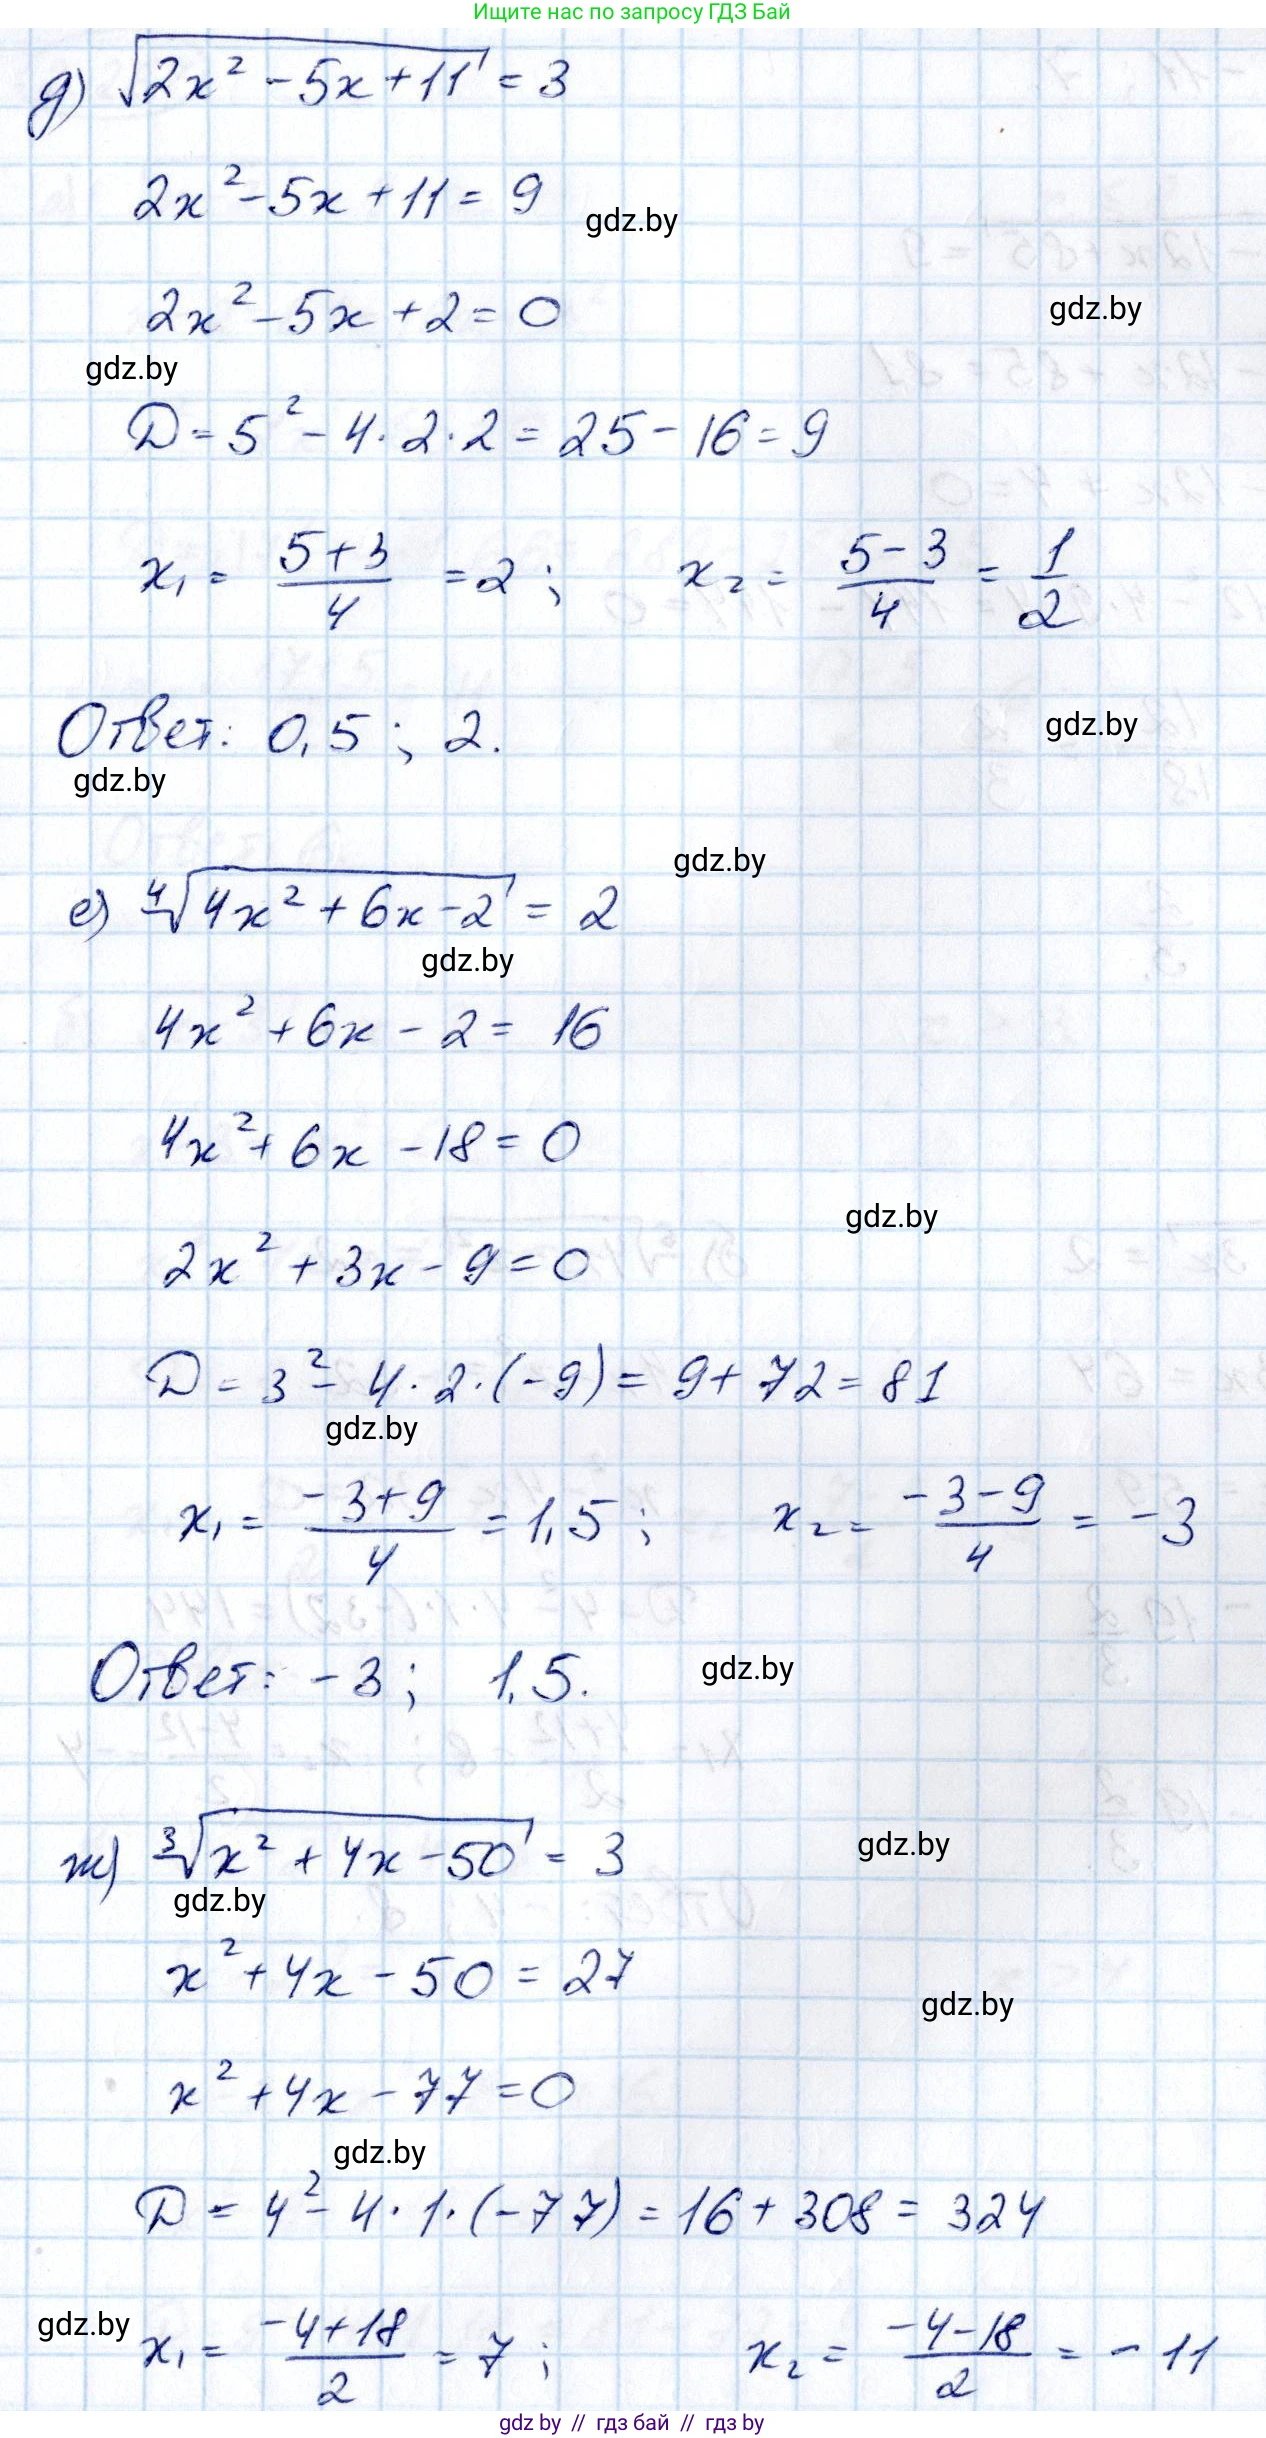 Ищите нас по запросу ГДЗ Бай
д) √(2x² - 5x + 11) = 3
2x² - 5x + 11 = 9
gdz.by
2x² - 5x + 2 = 0
gdz.by
gdz.by
D = 5² - 4 · 2 · 2 = 25 - 16 = 9
x₁ = (5 + 3)/4 = 2 ; x₂ = (5 - 3)/4 = 1/2
Ответ: 0,5 ; 2.
gdz.by
gdz.by
gdz.by
е) ⁴√(4x² + 6x - 2) = 2
gdz.by
4x² + 6x - 2 = 16
4x² + 6x - 18 = 0
gdz.by
2x² + 3x - 9 = 0
D = 3² - 4 · 2 · (-9) = 9 + 72 = 81
gdz.by
x₁ = (-3 + 9)/4 = 1,5 ; x₂ = (-3 - 9)/4 = -3
Ответ: -3 ; 1,5.
gdz.by
ж) ³√(x² + 4x - 50) = 3
gdz.by
gdz.by
x² + 4x - 50 = 27
gdz.by
x² + 4x - 77 = 0
gdz.by
D = 4² - 4 · 1 · (-77) = 16 + 308 = 324
gdz.by
x₁ = (-4 + 18)/2 = 7 ; x₂ = (-4 - 18)/2 = -11
gdz by // гдз бай // гдз by